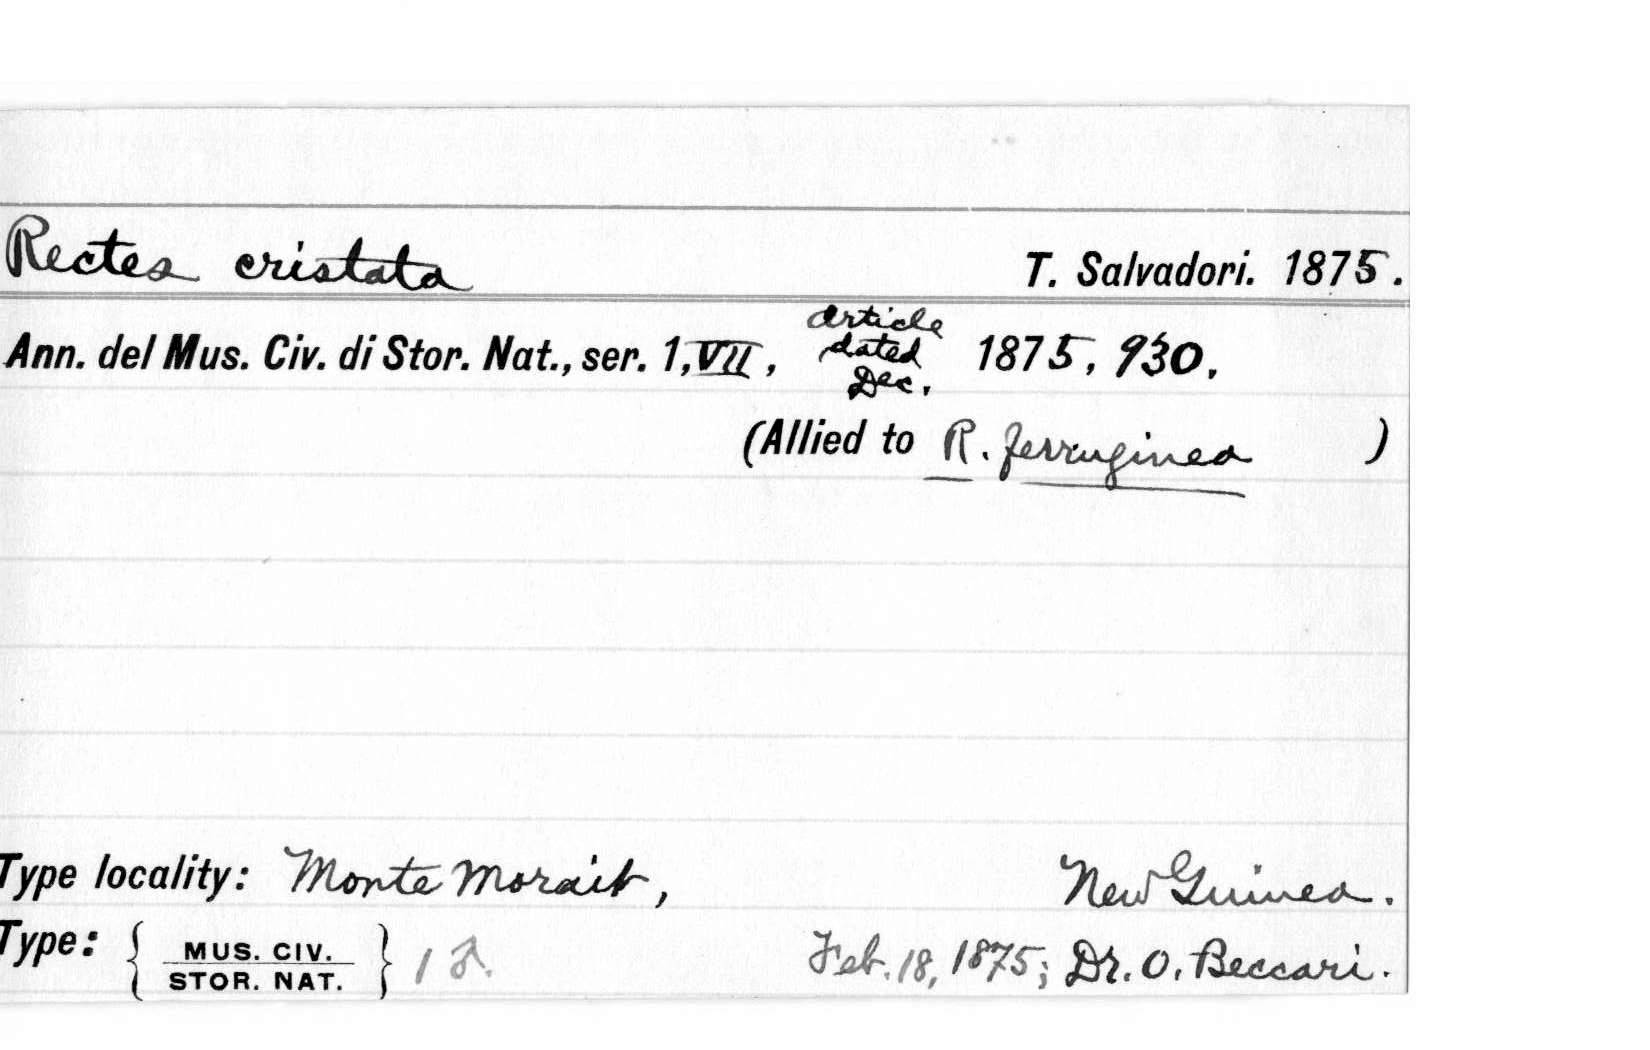 Rectes cristata T. Salvadori. 1875.
Ann. del Mus. Civ. di Stor. Nat., ser. 1, VII, article dated Dec. 1875, 930.
(Allied to R. ferruginea )
Type locality: Monte Morait, New Guinea.
Type: { MUS. CIV. STOR. NAT. } 1 ♂. Feb. 18, 1875; Dr. O. Beccari.